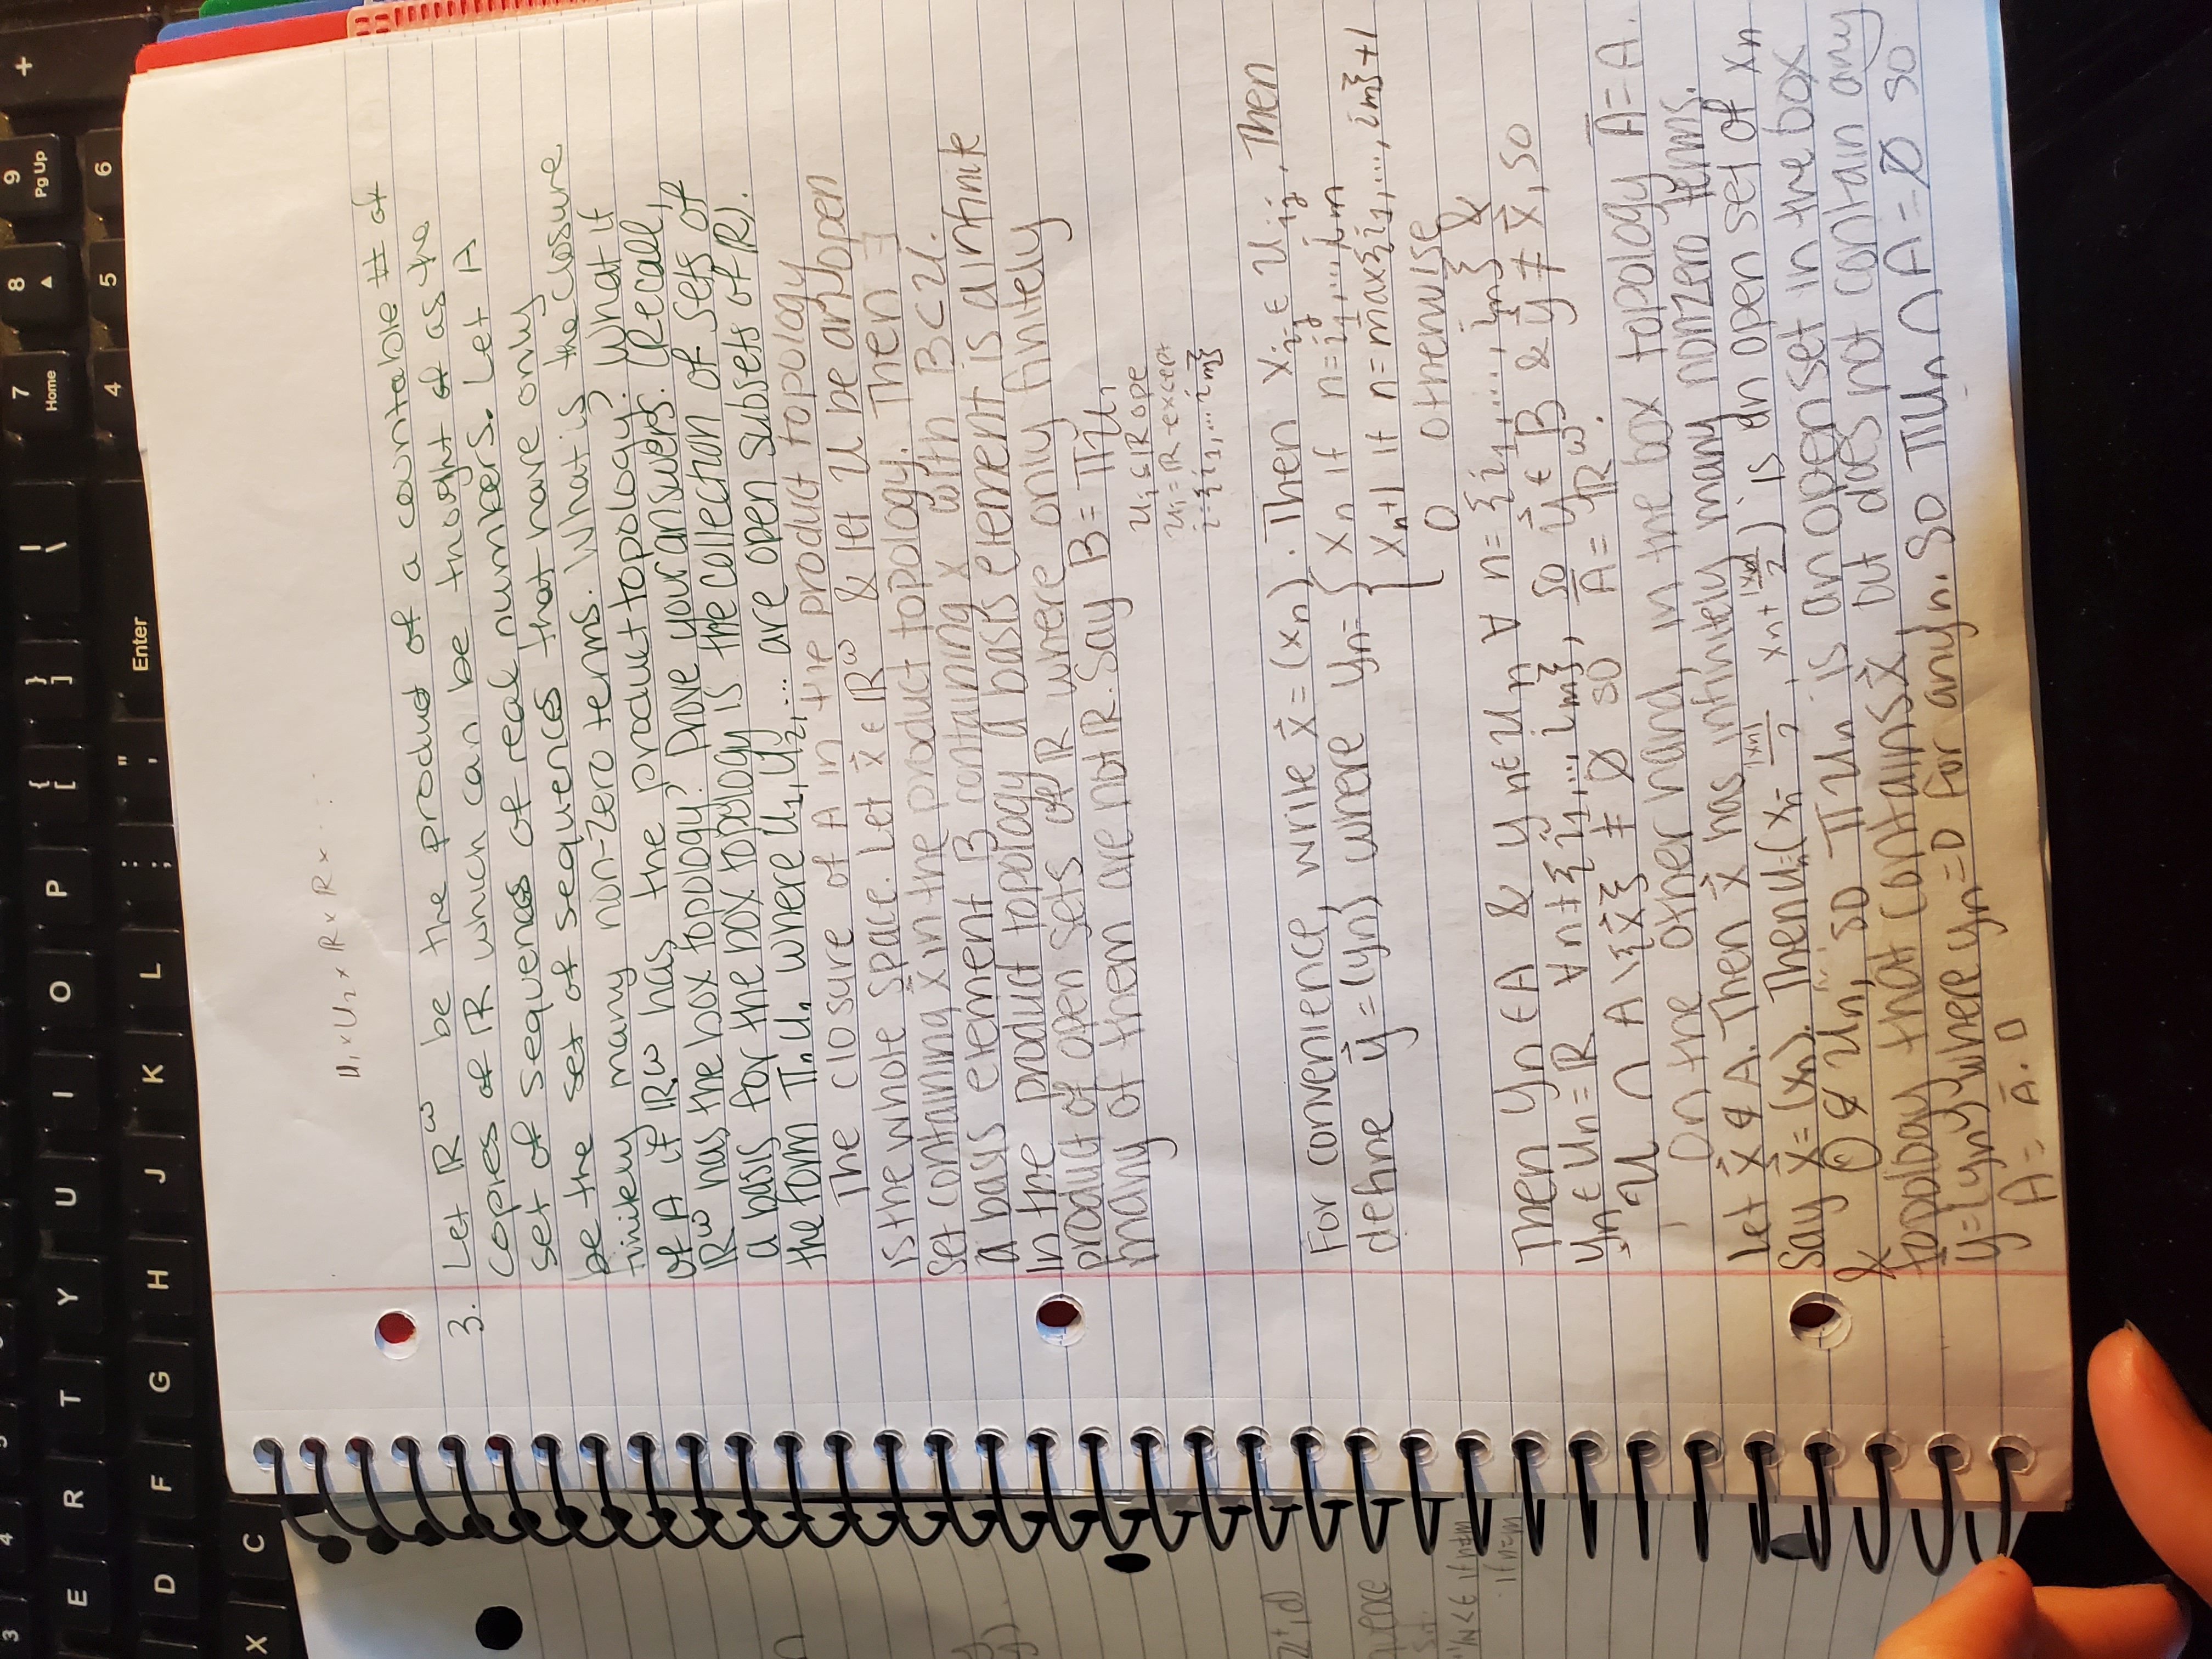 3 4 5 7 Home 8 ▲ 9 Pg Up +
E R T Y U I O P { [ } ] | \
4 5 6
D F G H J K L : ; " ' Enter
X C
U₁ × U₂ × ℝ × ℝ × ...
3. Let ℝ^ω be the product of a countable # of
copies of ℝ which can be thought of as the
set of sequences of real numbers. Let A
be the set of sequences that have only
finitely many non-zero terms. What is the closure
of A if ℝ^ω has the product topology? What if
ℝ^ω has the box topology? Prove your answers. (Recall,
a basis for the box topology is the collection of sets of
the form Πₙ Uₙ where U₁, U₂, ... are open subsets of ℝ).
The closure of A in the product topology
is the whole space. Let x⃗ ∈ ℝ^ω & let U be an open
set containing x⃗ in the product topology. Then ∃
a basis element B containing x with B ⊂ U.
In the product topology a basis element is a infinite
product of open sets of ℝ where only finitely
many of them are not ℝ. Say B = ΠUᵢ
Uᵢ ⊆ ℝ ope
Uᵢ = ℝ except
i = {i₁, ... iₘ}
For convenience, write x⃗ = (xₙ). Then x_{i_j} ∈ U_{i_j}. Then
define y⃗ = (yₙ) where yₙ = { xₙ if n = i₁, ..., iₘ
xₙ+1 if n = max{i₁, ..., iₘ}+1
0 otherwise
Then yₙ ∈ A & yₙ ∈ Uₙ ∀ n = {i₁, ..., iₘ} &
yₙ ∈ Uₙ = ℝ ∀ n ≠ {i₁, ..., iₘ}, so y⃗ ∈ B & y⃗ ≠ x⃗, so
U ∩ A \ {x⃗} ≠ ∅ so A̅ = ℝ^ω.
On the other hand, in the box topology A̅ = A.
Let x⃗ ∉ A. Then x⃗ has infinitely many nonzero terms.
Say x⃗ = (xₙ). Then Uₙ = (xₙ - |xₙ|/2, xₙ + |xₙ|/2) is an open set of xₙ
& 0 ∉ Uₙ, so ΠUₙ is an open set in the box
topology that contains x⃗, but does not contain any
y⃗ = (yₙ) where yₙ = 0 for any n. So ΠUₙ ∩ A = ∅ so
A = A̅. □
ℤ⁺, d)
quence
if n≠m
if n=m